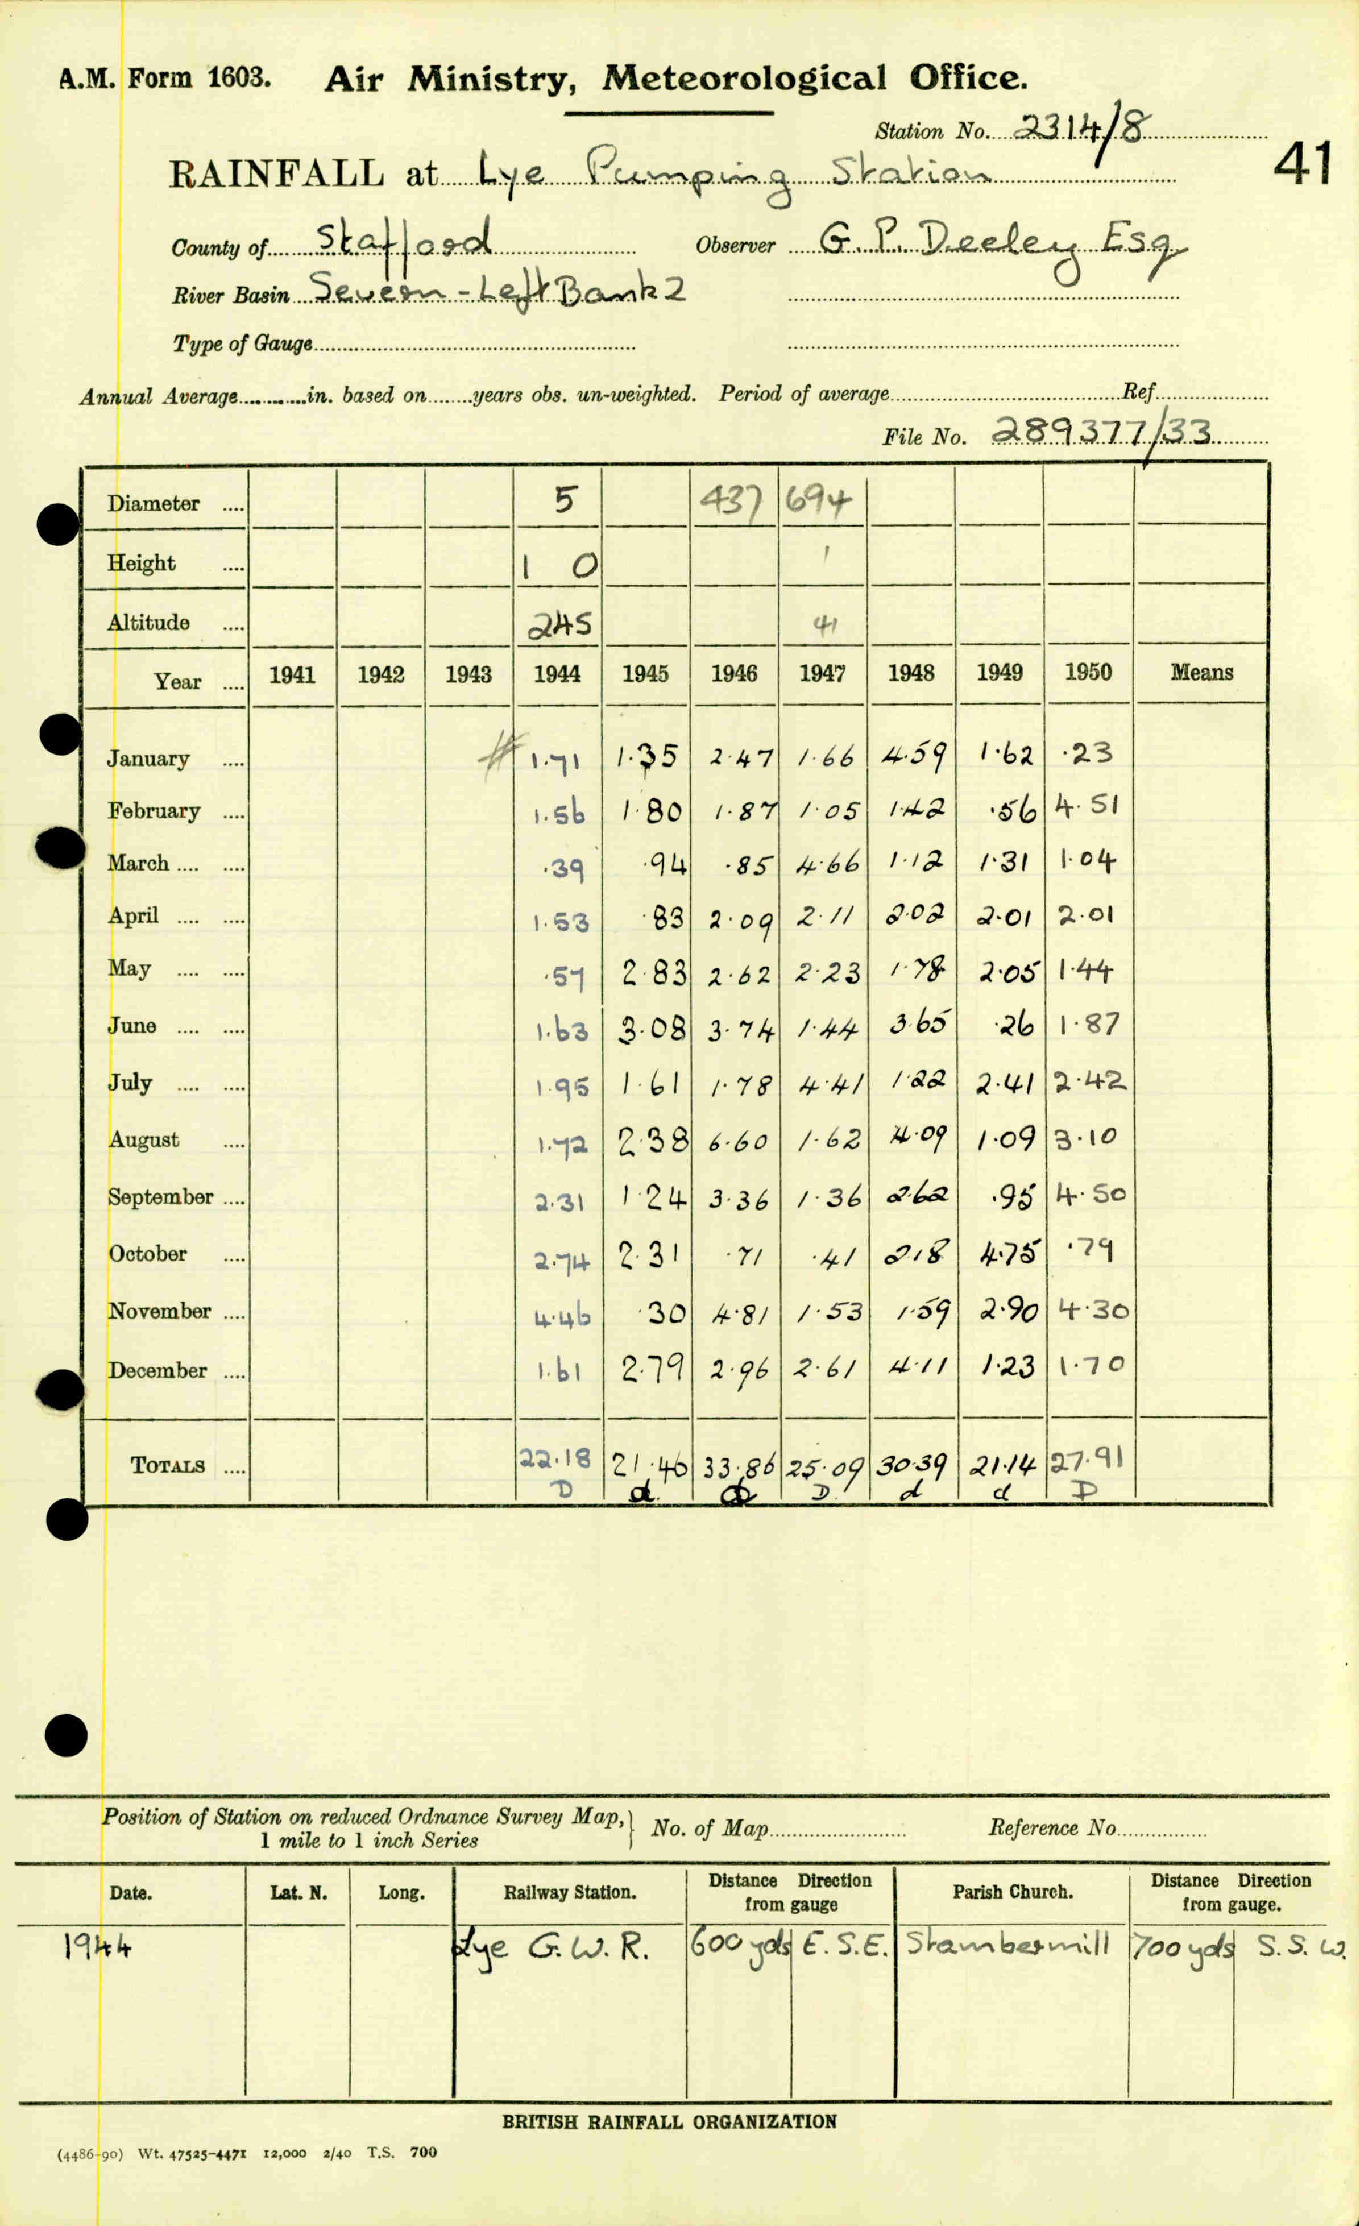 A.M. Form 1603. Air Ministry, Meteorological Office.
Station No. 2314/8
41
RAINFALL at Lye Pumping Station
County of Stafford Observer G. P. Deeley Esq
River Basin Severn - Left Bank 2
Type of Gauge
Annual Average in. based on years obs. un-weighted. Period of average Ref
File No. 289377/33
Diameter 5 437 694
Height 1 0 1
Altitude 245 41
Year 1941 1942 1943 1944 1945 1946 1947 1948 1949 1950 Means
January # 1.71 1.35 2.47 1.66 4.59 1.62 .23
February 1.56 1.80 1.87 1.05 1.42 .56 4.51
March .39 .94 .85 4.66 1.12 1.31 1.04
April 1.53 .83 2.09 2.11 2.02 2.01 2.01
May .57 2.83 2.62 2.23 1.78 2.05 1.44
June 1.63 3.08 3.74 1.44 3.65 .26 1.87
July 1.95 1.61 1.78 4.41 1.22 2.41 2.42
August 1.72 2.38 6.60 1.62 4.09 1.09 3.10
September 2.31 1.24 3.36 1.36 2.62 .95 4.50
October 2.74 2.31 .71 .41 2.18 4.75 .79
November 4.46 .30 4.81 1.53 1.59 2.90 4.30
December 1.61 2.79 2.96 2.61 4.11 1.23 1.70
TOTALS 22.18 21.46 33.86 25.09 30.39 21.14 27.91
D d D D d d D
Position of Station on reduced Ordnance Survey Map, 1 mile to 1 inch Series } No. of Map Reference No.
Date. Lat. N. Long. Railway Station. Distance Direction from gauge Parish Church. Distance Direction from gauge.
1944 Lye G.W.R. 600 yds E.S.E. Stambermill 700 yds S.S.W.
BRITISH RAINFALL ORGANIZATION
(4486-90) Wt. 47525-4471 12,000 2/40 T.S. 700